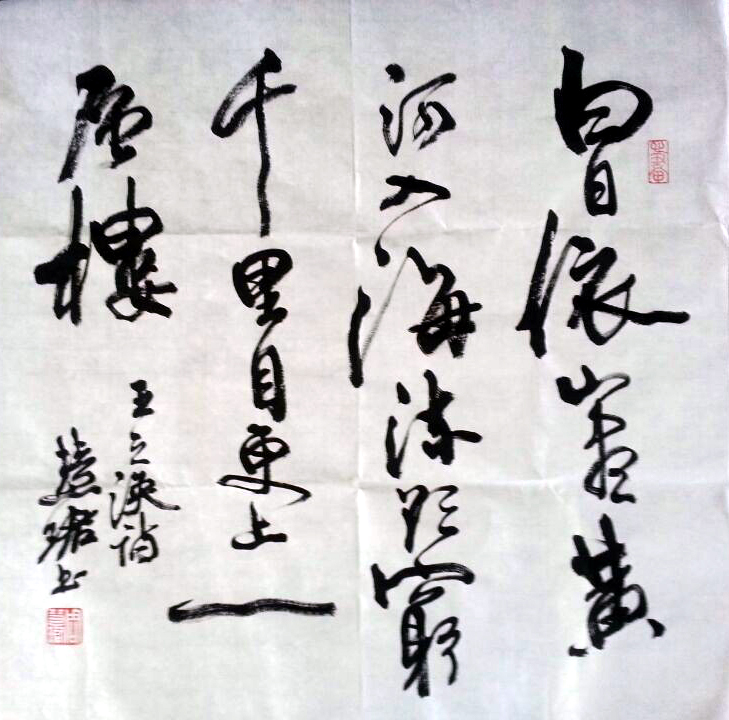 白日依山盡黃
河入海流欲窮
千里目更上一
層樓
王之渙詩
慧珺书